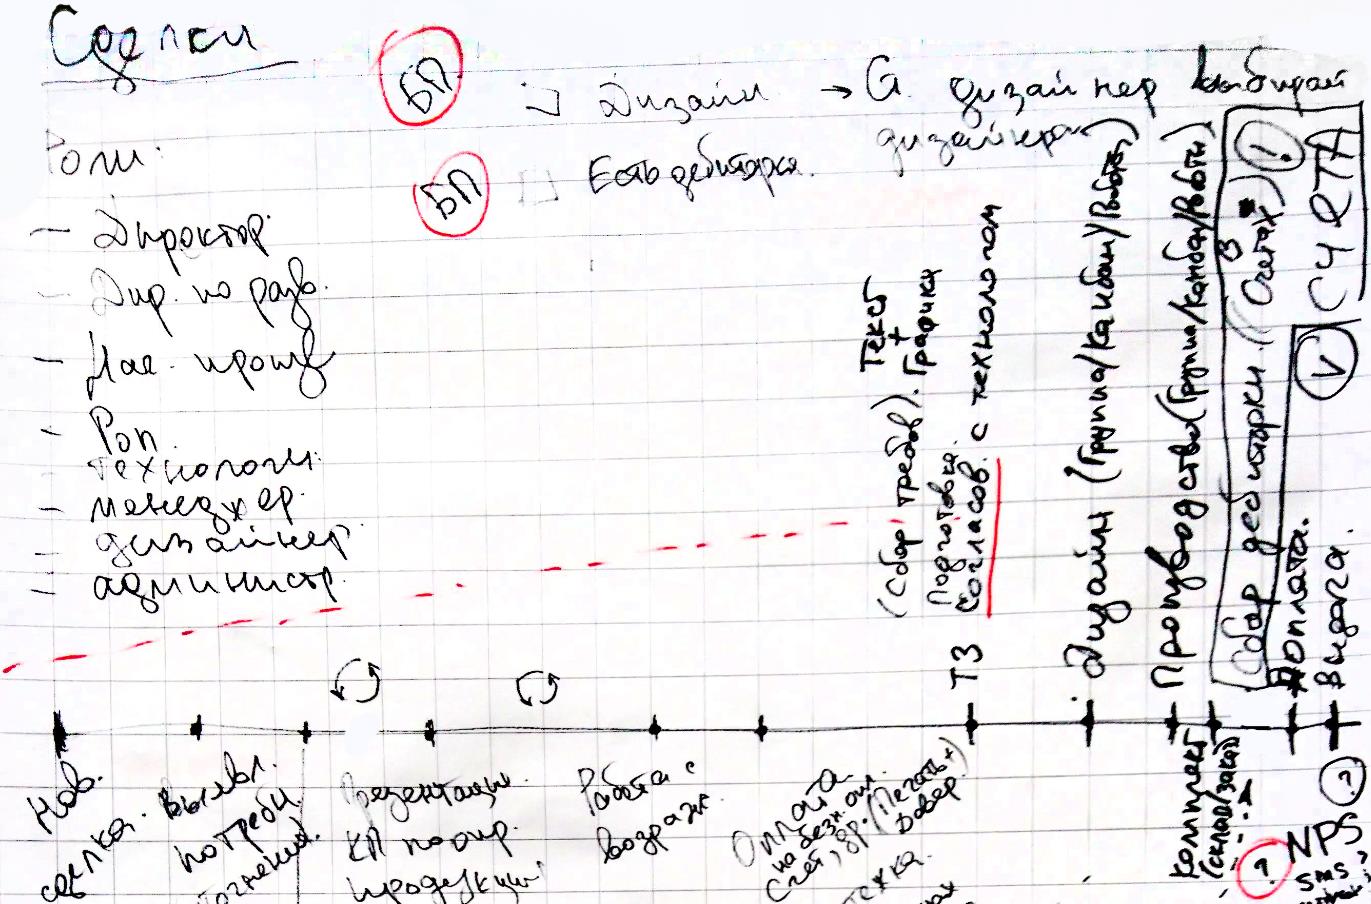 Сделки
БП
Дизайн → Gл. дизайнер выбирай
дизайнера
Роли:
БП
Есть дебиторка.
— Директор
— Дир. по разв.
— Нач. произв
— Роп.
— технологи
— менеджер
— дизайнер
— администр.
ТЗ (сбор требов). Текст + Графика
Подготовка.
Согласов. с технологом
Дизайн (Группа/Канбан/Роботы)
Производство (Группа/Канбан/Роботы)
Сбор дебиторки. (в Счетах) !
СЧЕТА
Доплата.
Выдача.
V
Нов.
сделка.
Выявл.
потребн
Презентация
КП по опр.
продукции
Работа с
возраж.
Оплата
на безн. опл.
Счет, (Печать+)
Довер.
Комплект
(склад/заказ)
?
?
NPS
SMS,